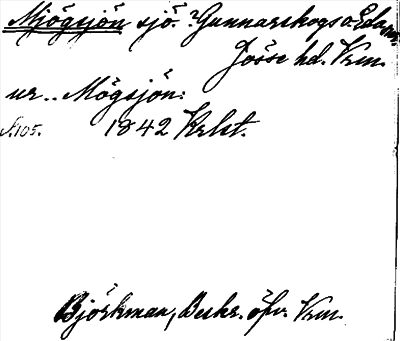 Mjögsjön sjö. Gunnarskogs o. Eda snr.
Jösse hd. Vrm.
ur .. Mögsjön:
S. 105. 1842 Krlst.
Björkman, Beskr. öfv. Vrm.